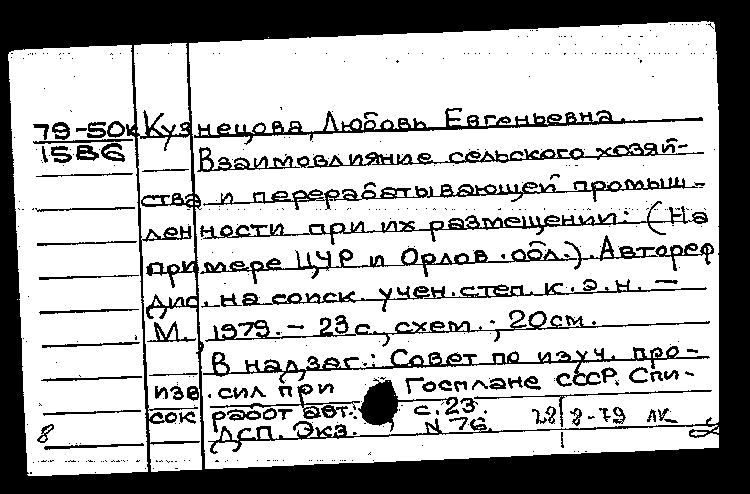 79-50к Кузнецова, Любовь Евгеньевна.
1586 Взаимовлияние сельского хозяй-
ства и перерабатывающей промыш-
ленности при их размещении: (На
примере ЦЧР и Орлов. обл.). Автореф
дис. на соиск. учен. степ. к.э.н. —
М., 1979. - 23 с., схем.; 20см.
В надзаг.: Совет по изуч. про-
изв. сил при Госплане СССР. Спи-
сок работ авт.: с. 23. 28 8-79 АК
8 ДСП. Экз. N 76.